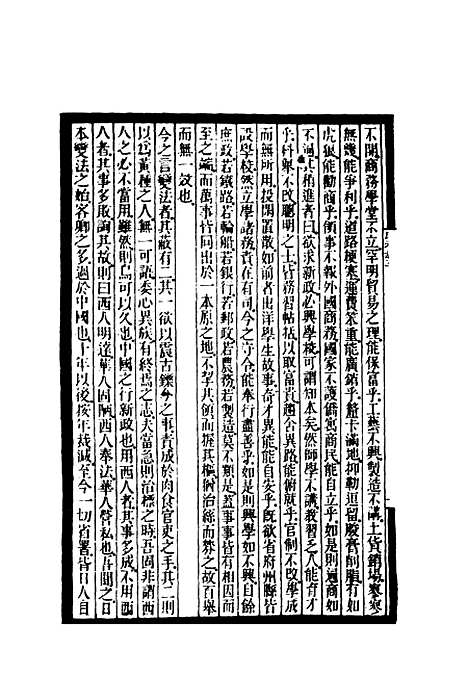 不開商務學堂不立罕明貿易之理能保富乎工藝不興製造不講土貨銷場寥寥
無幾能爭利乎道路梗塞運費笨重能廣銷乎釐卡滿地抑勒逗留朘膏削脂有如
虎狼能勸商乎領事不報外國商務國家不護僑寓商民能自立乎如是則通商如
不通其稍進者曰欲求新政必興學校可謂知本矣然師學不講教習乏人能育才
乎科舉不改聰明之士皆務習帖括以取富貴趨舍異路能俯就乎官制不改學成
而無所用投閑置散如前者出洋學生故事奇才異能能自安乎既欲省府州縣皆
設學校然立學諸務責在有司今之守令能奉行盡善乎如是則興學如不興自餘
庶政若鐵路若輪船若銀行若郵政若農務若製造莫不類是蓋事事皆有相因而
至之端而萬事皆同出於一本原之地不挈其領而握其樞猶治絲而棼之故百舉
而無一效也
今之言變法者其蔽有二其一欲以震古鑠今之事責成於肉食官吏之手其二則
以爲黃種之人無一可語委心異族有終焉之志夫當急則治標之時吾固非謂西
人之心不當用雖然則烏可以久也中國之行新政也用西人者其事多成不用西
人者其事多敗詢其故則曰西人明達華人固陋西人奉法華人營私也吾聞之日
本變法之始客卿之多過於中國也十年以後按年裁減至今一切省署皆日人自